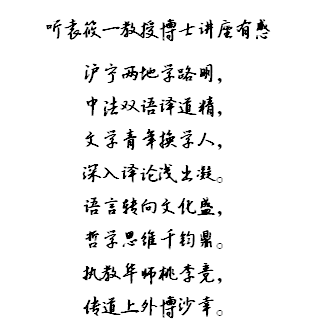 听袁筱一教授博士讲座有感
沪宁两地学路明，
中法双语译道精，
文学青年换学人，
深入译论浅出凝。
语言转向文化盛，
哲学思维千钧鼎。
执教华师桃李竞，
传道上外博沙幸。